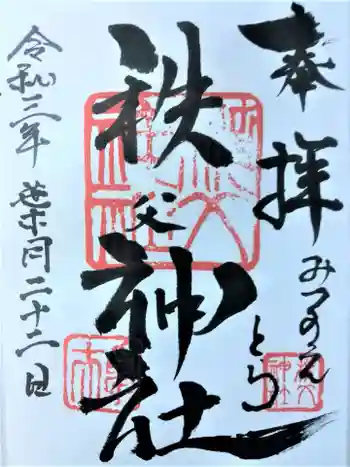 奉拝
みづのえ
とら
秩父神社
令和三年 葉月二十二日